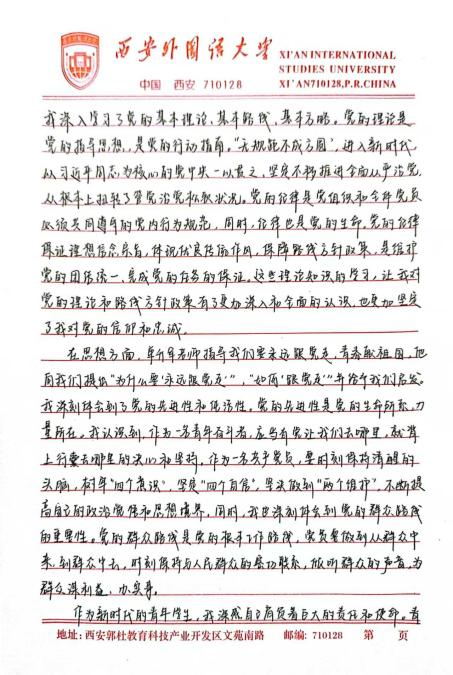 西安外国语大学
XI'AN INTERNATIONAL
STUDIES UNIVERSITY
中国 西安 710128
XI'AN710128,P.R.CHINA
我深入学习了党的基本理论,基本路线,基本方略。党的理论是
党的指导思想,是党的行动指南。“无规矩不成方圆”,进入新时代,
以习近平同志为核心的党中央一以贯之,坚定不移推进全面从严治党,
从根本上扭转了管党治党松软状况。党的纪律是党组织和全体党员
必须共同遵守的党内行为规范,同时,纪律也是党的生命。党的纪律
保证理想信念宗旨,体现优良传统作风,保障路线方针政策,是维护
党的团结统一、完成党的任务的保证。这些理论知识的学习,让我对
党的理论和路线方针政策有了更加深入和全面的认识,也更加坚定
了我对党的信仰和忠诚。
在思想方面,老师指导我们要永远跟党走,青春献祖国,他
向我们提出“为什么要‘永远跟党走’”,“如何‘跟党走’”并给予我们启发。
我深刻体会到了党的先进性和纯洁性。党的先进性是党的生命所系,力
量所在。我认识到,作为一名青年奋斗者,应当有党让我们去哪里,就背
上行囊去哪里的决心和坚持。作为一名共产党员,要时刻保持清醒的
头脑,树牢“四个意识”,坚定“四个自信”,坚决做到“两个维护”,不断提
高自己的政治觉悟和思想境界,同时,我也深刻体会到党的群众路线
的重要性。党的群众路线是党的根本工作路线,党员要做到从群众中
来,到群众中去,时刻保持与人民群众的密切联系,倾听群众的声音,为
群众谋利益,办实事。
作为新时代的青年学生,我深感自己肩负着巨大的责任和使命。首
地址:西安郭杜教育科技产业开发区文苑南路 邮编:710128 第 页